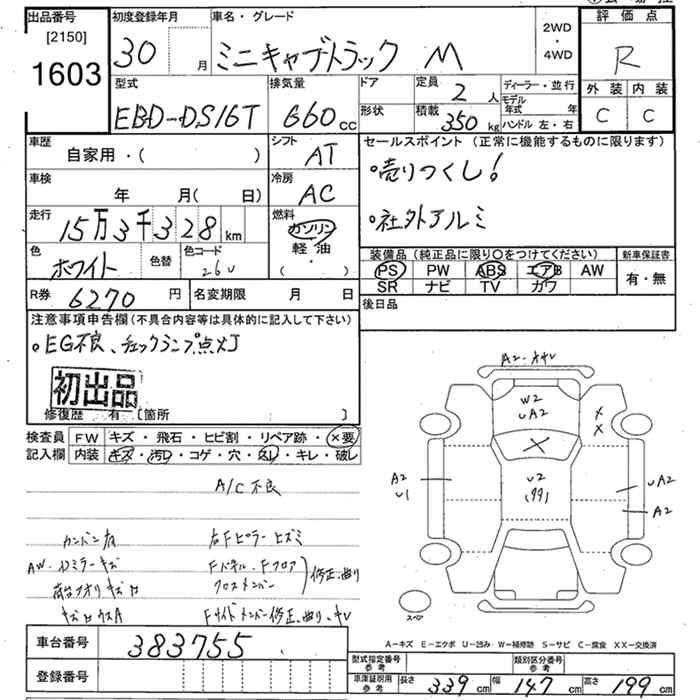 出品番号 初度登録年月 車名・グレード 2WD・4WD 評価点
[2150]
1603
30 月 ミニキャブトラック M R
型式 排気量 ドア 定員 2 人 ディーラー・並行 外装 内装
EBD-DS16T 660 cc 形状 積載 350 kg モデル年式 年 ハンドル 左・右 C C
車歴 シフト セールスポイント (正常に機能するものに限ります)
自家用・( ) AT
・売りつくし!
車検 冷房
年 月(日) AC
・社外アルミ
走行 15万3千328 km 燃料 ガソリン 軽・油 ( )
色 ホワイト 色替 色コード 26U
装備品 (純正品に限り〇をつけてください) 新車保証書
PS PW ABS エアB AW 有・無
SR ナビ TV カワ
R券 6270 円 名変期限 月 日
後日品
注意事項申告欄 (不具合内容等は具体的に記入して下さい)
・EG不良、チェックランプ点灯
初出品
修復歴 有 〔箇所 〕
検査員記入欄 FW キズ・飛石・ヒビ割・リペア跡・×要
内装 キズ・汚レ・コゲ・穴・スレ・キレ・破レ
A/C不良
右Fピラー ヒズミ
AW・ミラーキズ Fパネル・Fフロア
クロスメンバー
修正、曲り
Fサイドメンバー修正、曲り、
A2
W2
UA2
X
X
X
A2
U1
U2
(99)
UA2
A2
スペア
A−キズ E−エクボ U−凹み W−補修跡 S−サビ C−腐食 XX−交換済
車台番号 383755
登録番号
型式指定番号参考 類別区分番号参考
車庫証明用参考 長さ 339 cm 幅 147 cm 高さ 199 cm